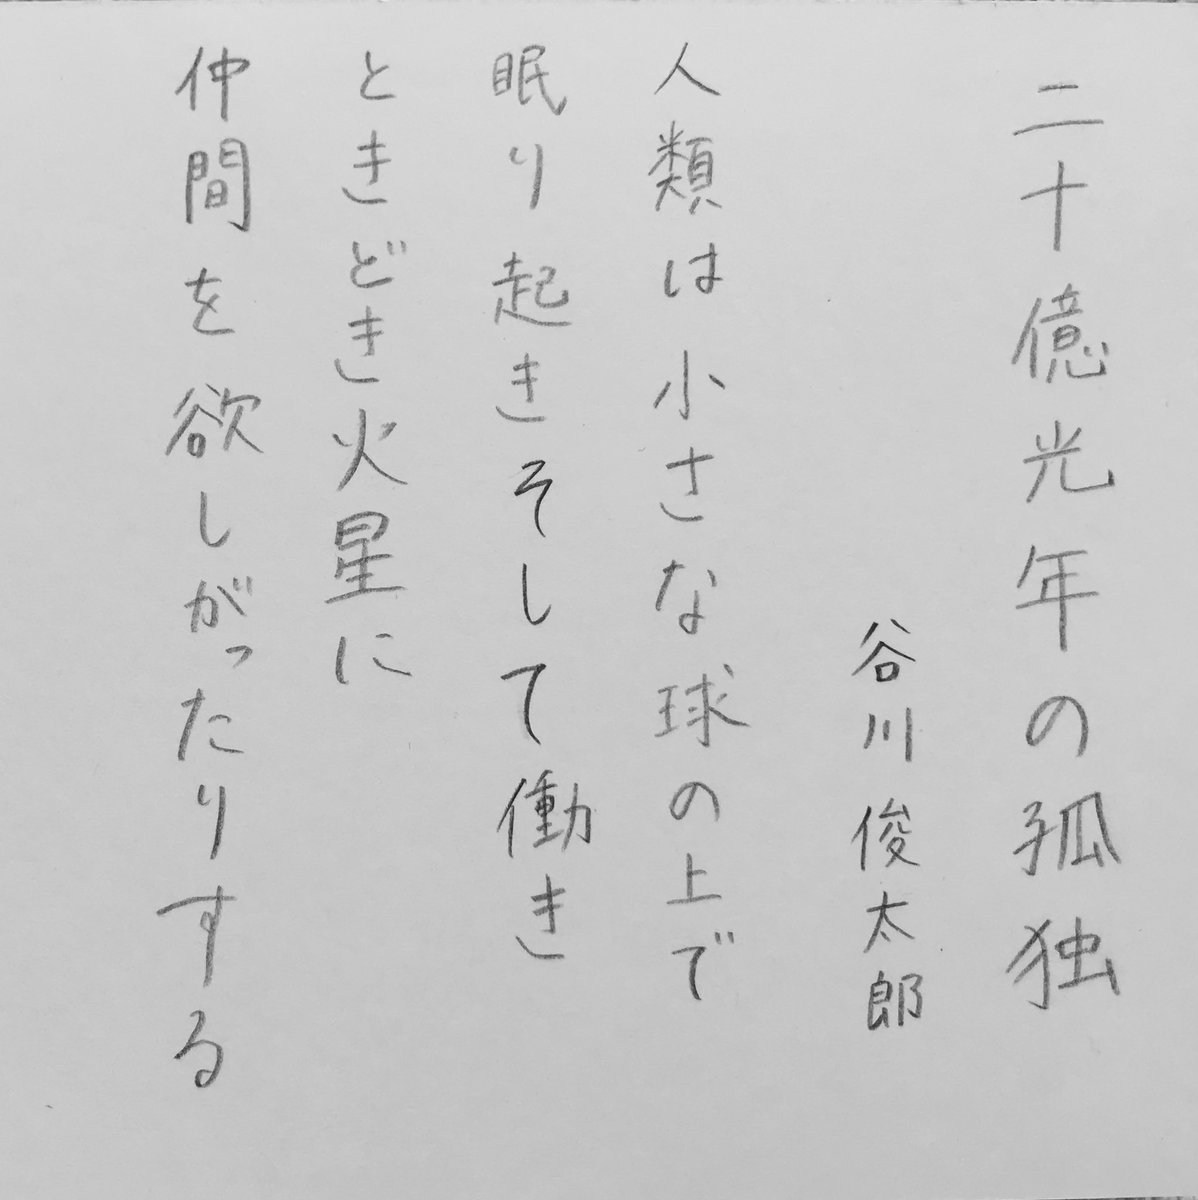 二十億光年の孤独
谷川俊太郎
人類は小さな球の上で
眠り起きそして働き
ときどき火星に
仲間を欲しがったりする